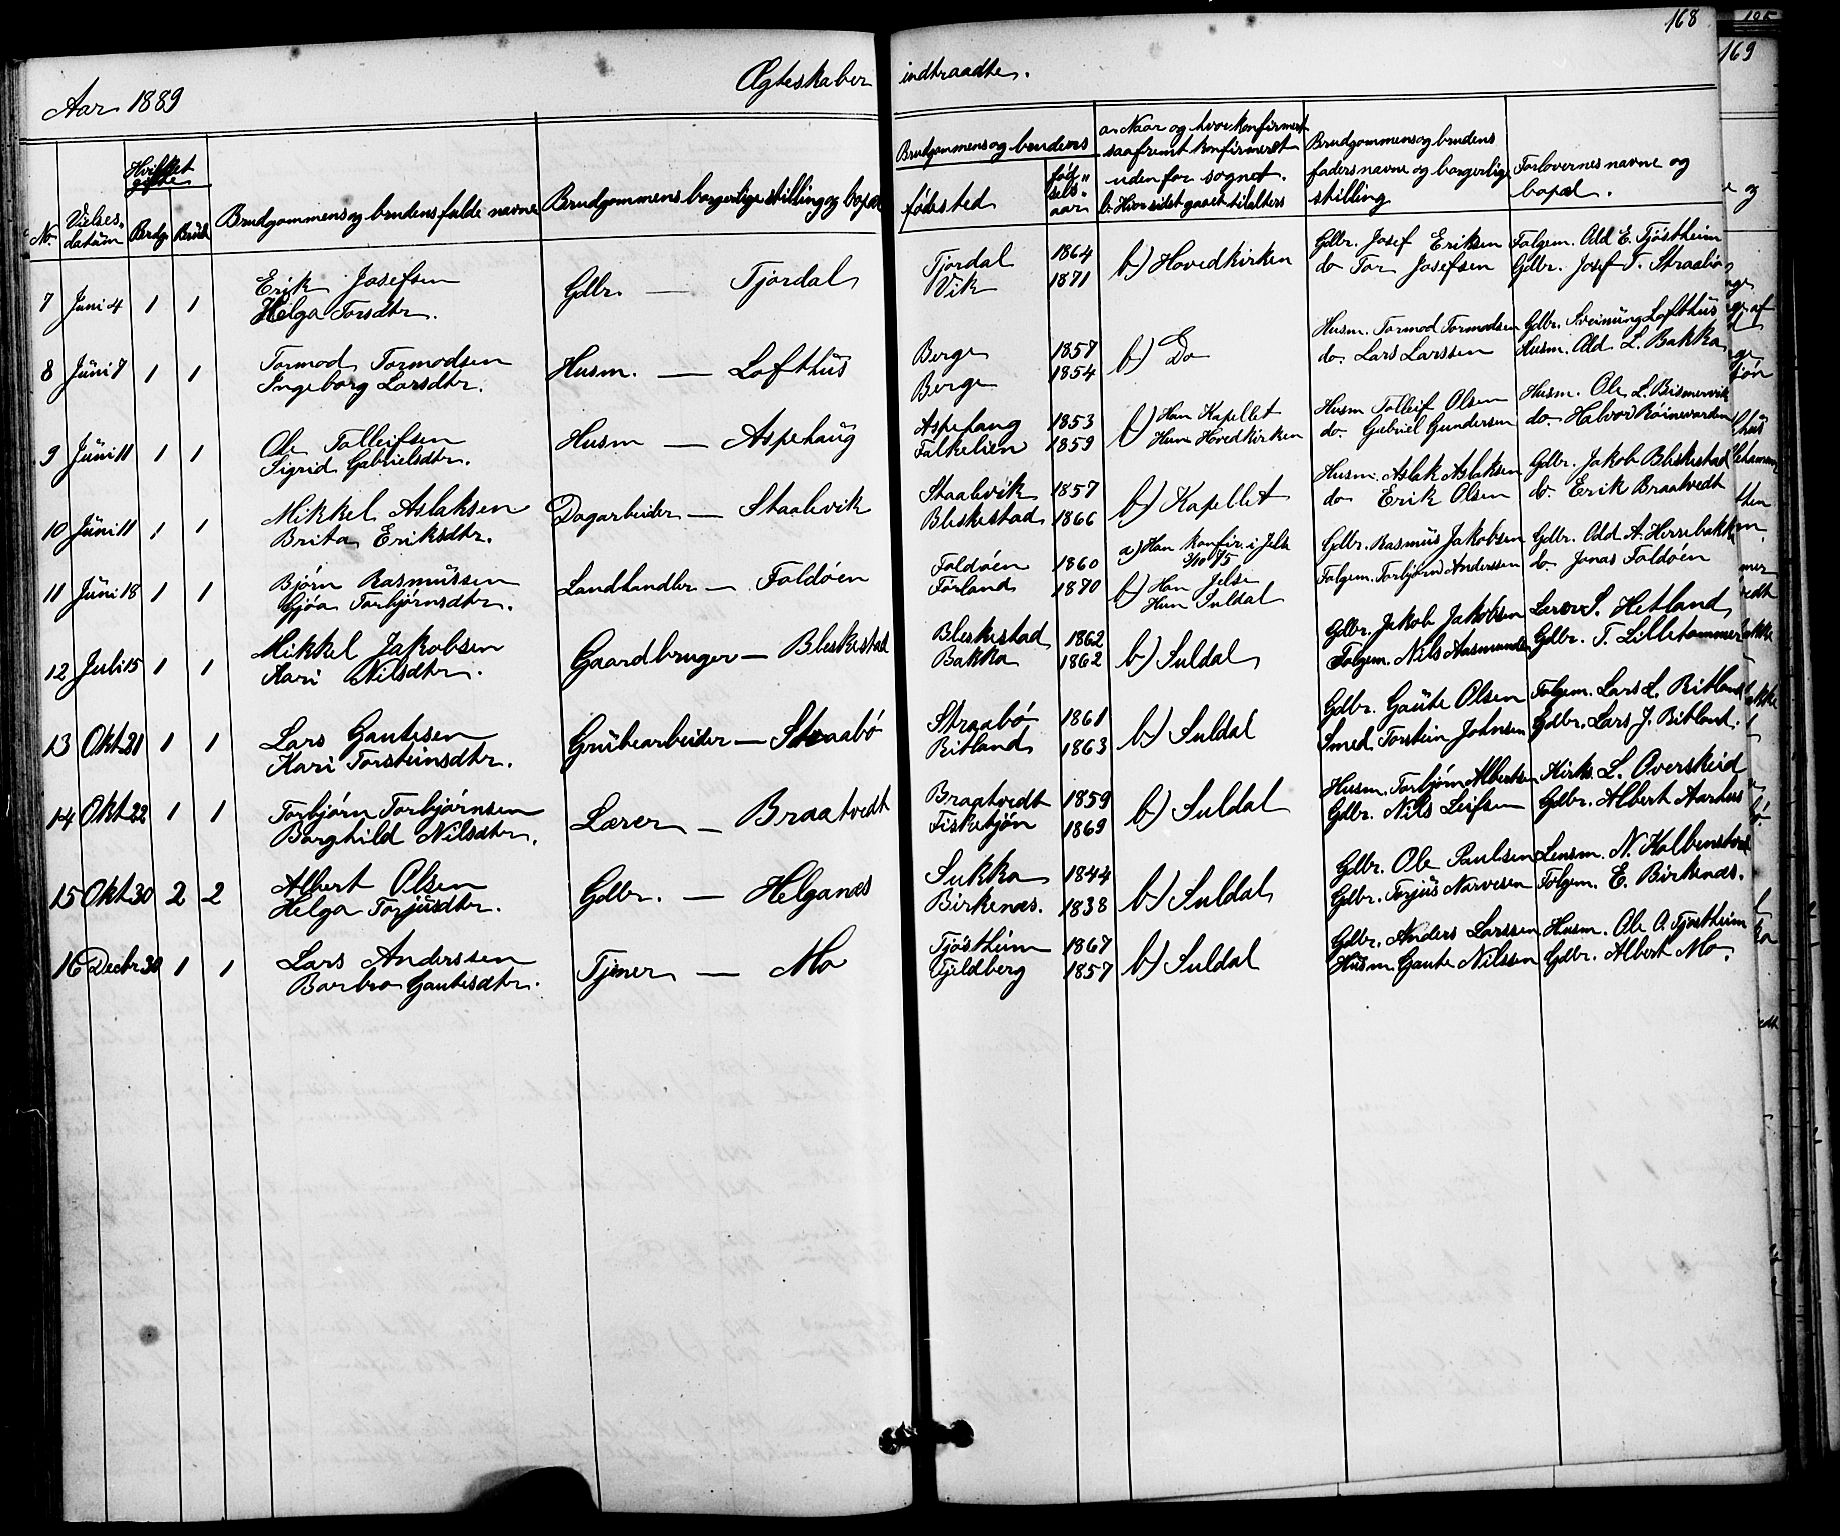 168
Aar 1889 Ægteskaber indtraadte.
No. Vielses-datum Hvilket gifte Brdg. Brud Brudgommens og brudens fulde navne Brudgommens borgerlige stilling og bopæl Brudgommens og brudens fødested fødselsaar a. Naar og hvor konfirmeret saafremt konfirmeret uden for sognet. b. Hvor sidst gaaet til alters Brudgommens og brudens faders navne og borgerlige stilling Forlovernes navne og bopæl.
7 Juni 4 1 1 Erik Josefsen Gdbr. — Tjordal Tjordal 1864 b) Hovedkirken Gdbr. Josef Eriksen Folgem. Odd E. Tjöstheim
Helga Torsdtr. Vik 1871 do Tor Josefsen Gdbr. Josef T. Straabö
8 Juni 7 1 1 Tormod Tormodsen Husm. — Lofthus Berge 1857 b) Do Husm. Tormod Tormodsen Gdbr. Sveinung Lofthus
Ingeborg Larsdtr. Berge 1854 do. Lars Larssen Husm. Odd L. Bakka
9 Juni 11 1 1 Ole Tolleifsen Husm — Aspehaug Aspehaug 1853 b) Han Kapellet Husm Tolleif Olsen Husm. Ole L. Bismervik
Sigrid Gabrielsdtr. Falkelien 1859 Hun Hovedkirken do. Gabriel Gundersen do. Halvor Röinevarden
10 Juni 11 1 1 Mikkel Aslaksen Dagarbeider — Staalevik Staalevik 1857 b) Kapellet Husm. Aslak Aslaksen Gdbr. Jakob Bleskestad
Brita Eriksdtr. Bleskestad 1866 do Erik Olsen do. Erik Braatvedt
11 Juni 18 1 1 Bjørn Rasmussen Landhandler — Foldöen Foldöen 1860 a) Han konfir. i Jelse 3/10 75 Gdbr. Rasmus Jakobsen Gdbr. Odd A. Herrebakke
Gjöa Torbjørnsdtr. Förland 1870 b) Han Jelse Hun Suldal Folgem. Torbjörn Anderssen do. Jonas Foldöen
12 Juli 15 1 1 Mikkel Jakobsen Gaardbruger — Bleskestad Bleskestad 1862 b) Suldal Gdbr. Jakob Jakobsen Lærer S. Hetland
Kari Nilsdtr. Bakka 1862 Folgem. Nils Aasmundsen Gdbr. T. Lillehammer
13 Okt 21 1 1 Lars Gautesen Grubearbeider — Straabö Straabö 1861 b) Suldal Gdbr. Gaute Olsen Folgem. Lars L. Ritland
Kari Torsteinsdtr. Ritland 1863 Smed Torstein Johnsen Gdbr. Lars J. Ritland.
14 Okt 22 1 1 Torbjörn Torbjørnsen Lærer — Braatvedt Braatvedt 1859 b) Suldal Husm. Torbjörn Albertsen Kirks. L. Overskeid
Borghild Nilsdtr. Fisketjön 1869 Gdbr. Nils Leifsen Gdbr. Albert Aarhus
15 Okt 30 2 2 Albert Olsen Gdbr. — Helganæs Sukka 1844 b) Suldal Gdbr. Ole Paulsen Lensm. N. Kolbenstvedt
Helga Torjusdtr. Birkenæs. 1838 Gdbr. Torjus Narvesen Folgem. E. Birkenæs.
16 Decbr 30 1 1 Lars Anderssen Tjener — Mo Tjöstheim 1867 b) Suldal Gdbr. Anders Larssen Husm. Ole O. Tjöstheim
Barbro Gautesdtr. Gjildberg 1857 Husm Gaute Nilssen Gdbr. Albert Mo.
169